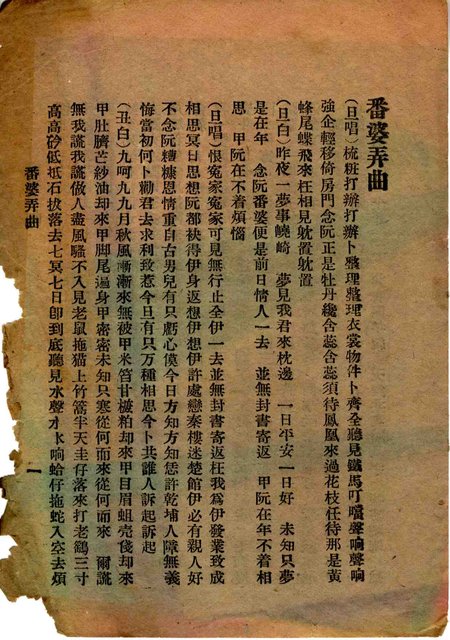 番婆弄曲
(旦唱)梳粧打辦打辦卜整理整理衣裳物件卜齊全聽見鐵馬叮噹聲响聲响
強企輕移倚房門念阮正是牡丹纔含蕊含蕊須待鳳凰來過花枝任待那是黃
蜂尾蝶飛來枉相見躭置躭置
(旦白)昨夜一夢事蹺崎 夢見我君來枕邊 一日平安一日好 未知只夢
是在年 念阮番婆便是前日情人一去 並無封書寄返 甲阮在年不着相
思 甲阮在不着煩惱
(旦唱)恨冤家冤家可見無行止全伊一去並無封書寄返枉我爲伊發業致成
相思冥日思想阮都袂得伊身返想伊想伊許處戀秦樓迷楚館伊必有親人好
不念阮糟糠恩情重自古男兒有只虧心僕今日方知方知恁許乾埔人障無義
悔當初何卜勸君去求利致惹今旦有只万種相思今卜共誰人訴起訴起
(丑白)九呵九九月秋風漸漸來無被甲米筩甘樜粕却來甲目眉蛆壳㑪却來
甲肚臍芒紗油却來甲脚尾遍身甲密密未知只寒從何而來從何而來 爾謊
無我謊我謊傲人盡風騷不入見老鼠拖猫上竹篙半天圭仔落來打老鷂三寸
高高矽低坻石拔落去七冥七日卽到底聽見水聲水水响蛤仔拖蛇入空去煩
番婆弄曲
一